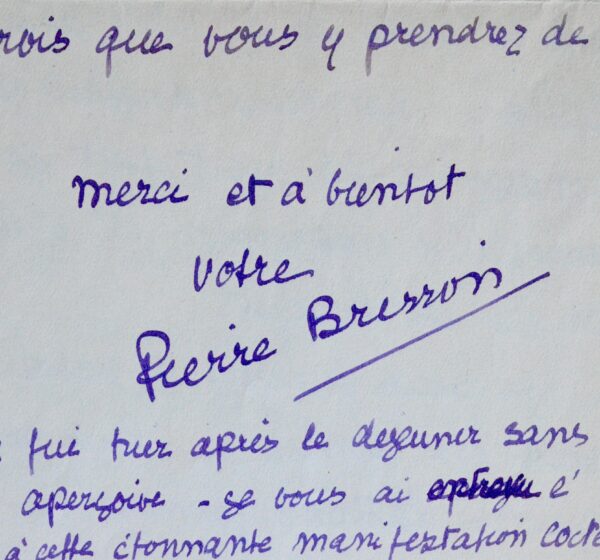 rois que vous y prendrez de
merci et à bientot
votre
Pierre Bresson
fui tuer après le dejeuner sans
aperçoive - je vous ai é
à cette étonnante manifestation cocte